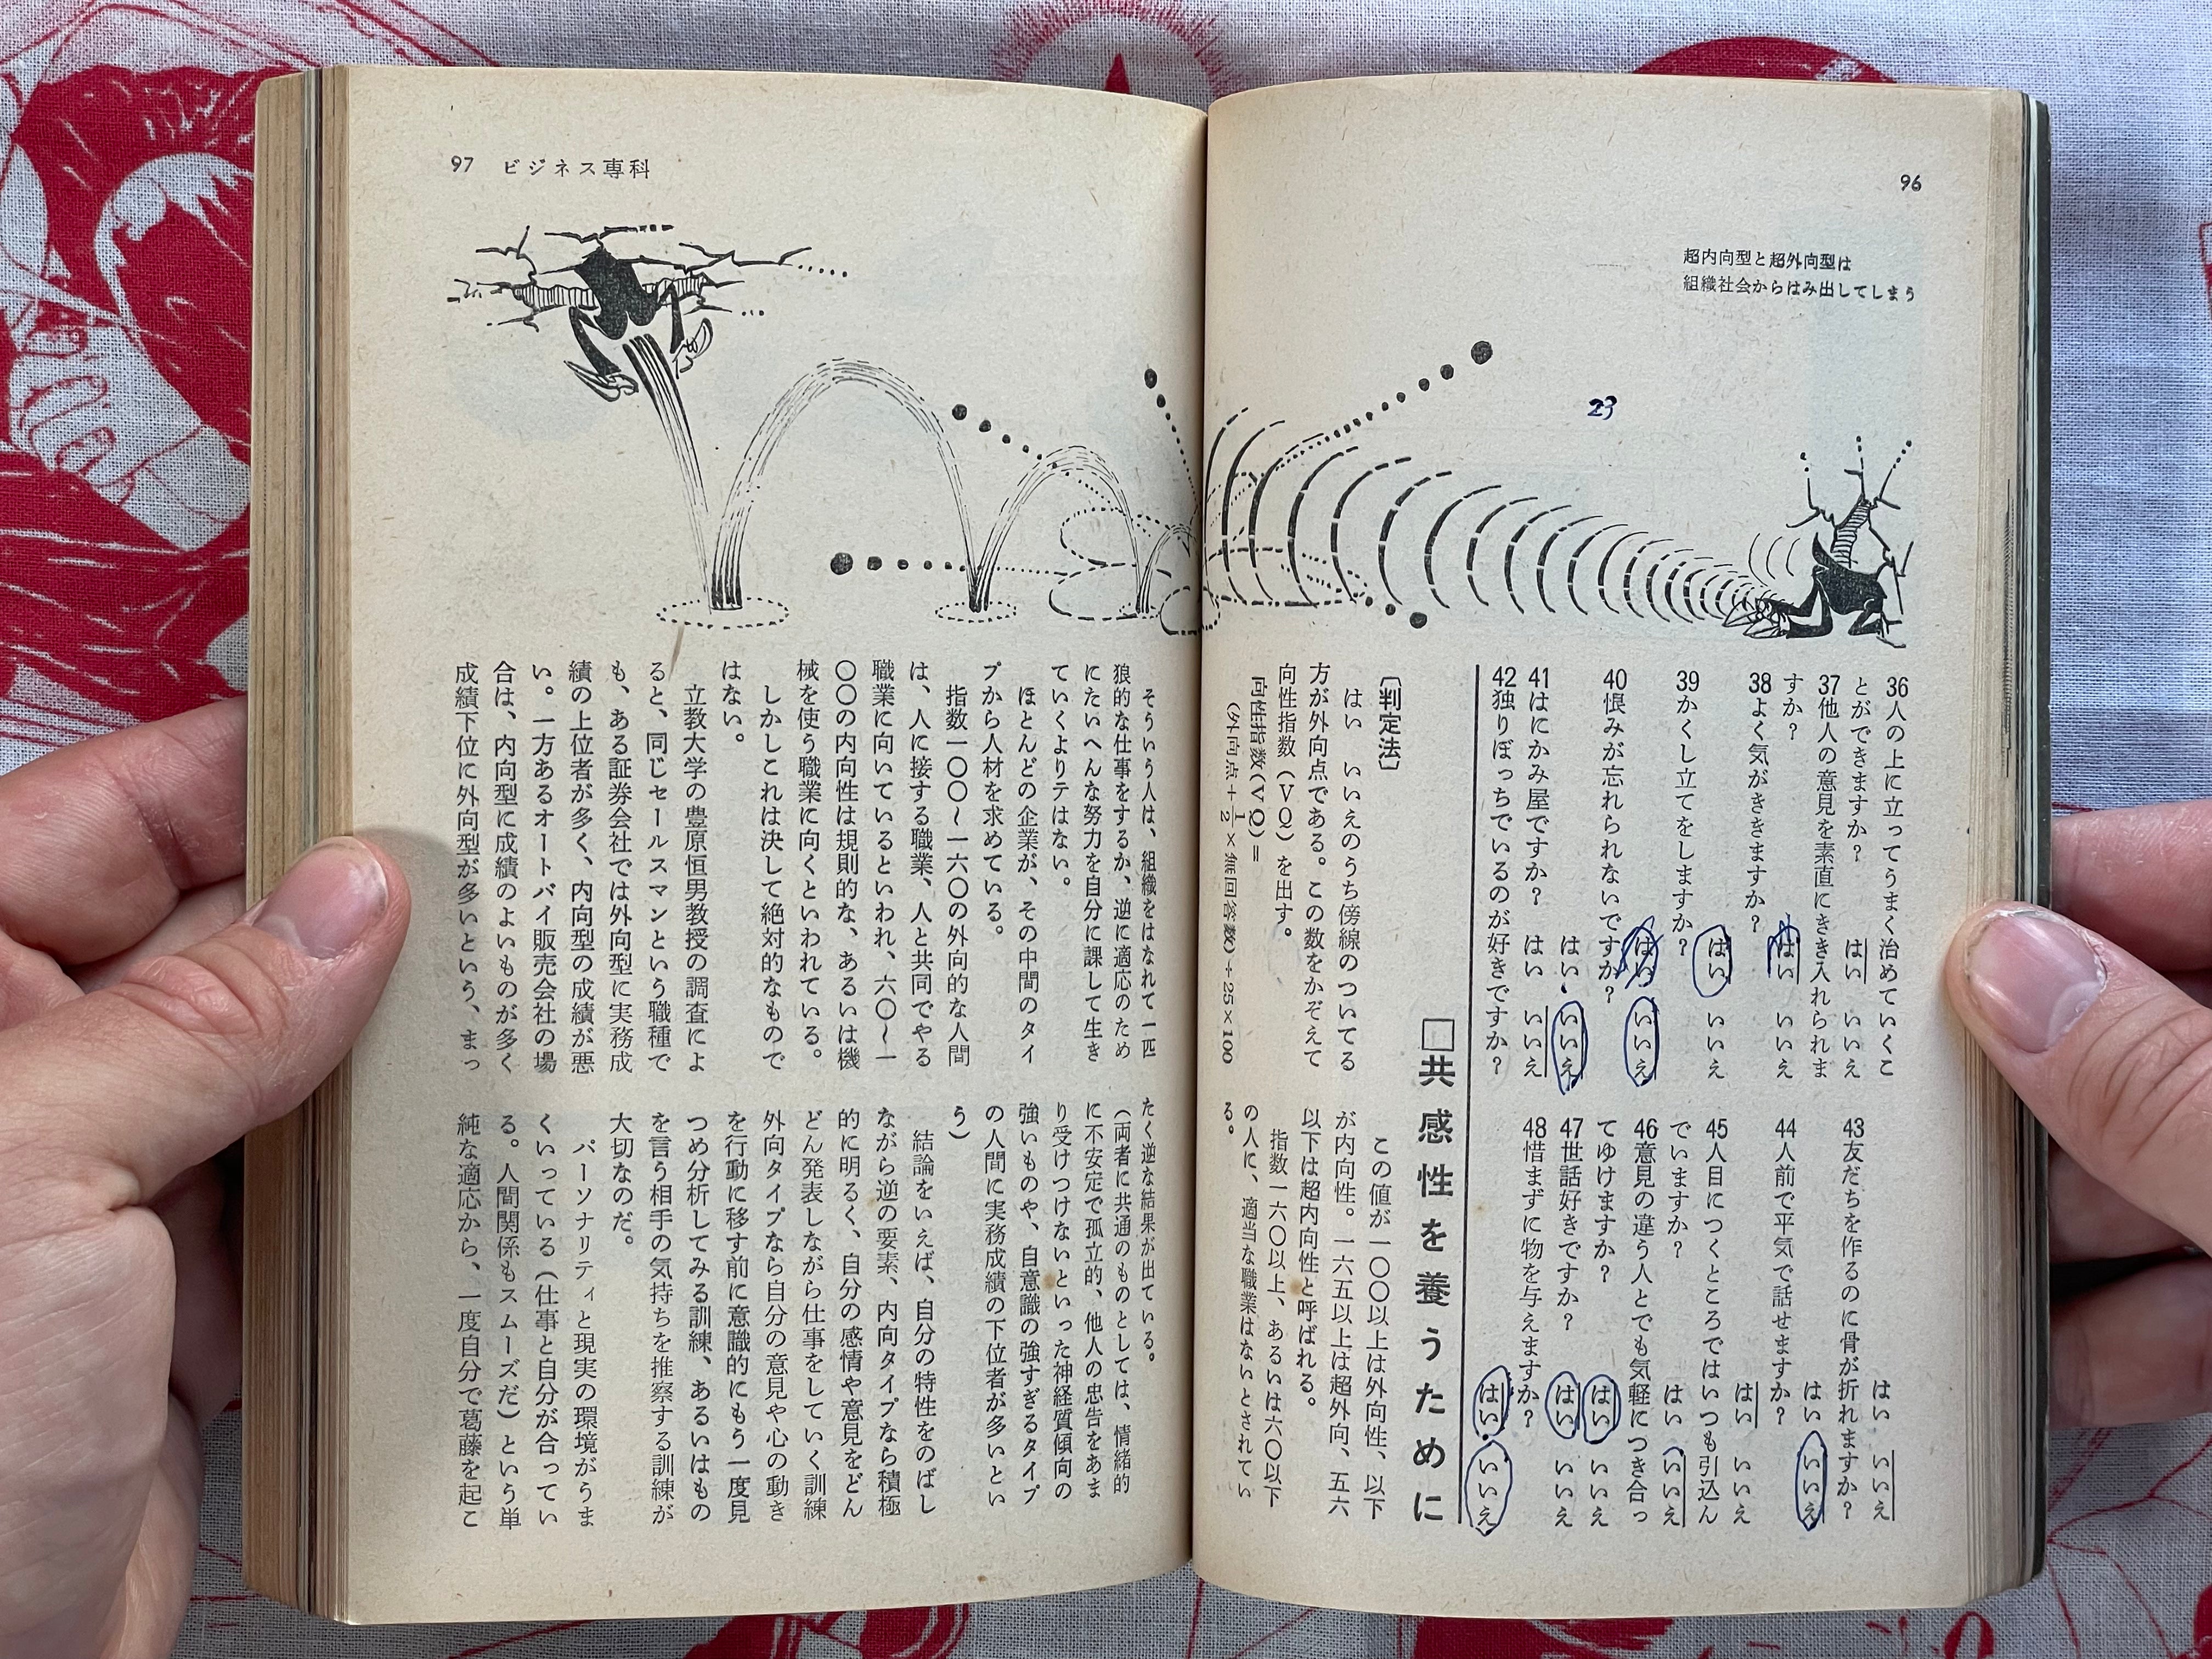 96
超内向型と超外向型は
組織社会からはみ出してしまう
23
36人の上に立ってうまく治めていくこ
とができますか？　はい　いいえ
37他人の意見を素直にきき入れられま
すか？　はい　いいえ
38よく気がききますか？
はい　いいえ
39かくし立てをしますか？
はい　いいえ
40恨みが忘れられないですか？
はい　いいえ
41はにかみ屋ですか？　はい　いいえ
42独りぼっちでいるのが好きですか？
はい　いいえ
43友だちを作るのに骨が折れますか？
はい　いいえ
44人前で平気で話せますか？
はい　いいえ
45人目につくところではいつも引込ん
でいますか？　はい　いいえ
46意見の違う人とでも気軽につき合っ
てゆけますか？　はい　いいえ
47世話好きですか？　はい　いいえ
48惜まずに物を与えますか？
はい　いいえ
□共感性を養うために
〔判定法〕
はい　いいえのうち傍線のついてる
方が外向点である。この数をかぞえて
向性指数（VQ）を出す。
向性指数(VQ)＝
（外向点＋1/2×無回答数）÷25×100
この値が一〇〇以上は外向性、以下
が内向性。一六五以上は超外向、五六
以下は超内向性と呼ばれる。
指数一六〇以上、あるいは六〇以下
の人に、適当な職業はないとされてい
る。
97　ビジネス専科
そういう人は、組織をはなれて一匹
狼的な仕事をするか、逆に適応のため
にたいへんな努力を自分に課して生き
ていくよりテはない。
ほとんどの企業が、その中間のタイ
プから人材を求めている。
指数一〇〇〜一六〇の外向的な人間
は、人に接する職業、人と共同でやる
職業に向いているといわれ、六〇〜一
〇〇の内向性は規則的な、あるいは機
械を使う職業に向くといわれている。
しかしこれは決して絶対的なもので
はない。
立教大学の豊原恒男教授の調査によ
ると、同じセールスマンという職種で
も、ある証券会社では外向型に実務成
績の上位者が多く、内向型の成績が悪
い。一方あるオートバイ販売会社の場
合は、内向型に成績のよいものが多く
成績下位に外向型が多いという、まっ
たく逆な結果が出ている。
（両者に共通のものとしては、情緒的
に不安定で孤立的、他人の忠告をあま
り受けつけないといった神経質傾向の
強いものや、自意識の強すぎるタイプ
の人間に実務成績の下位者が多いとい
う）
結論をいえば、自分の特性をのばし
ながら逆の要素、内向タイプなら積極
的に明るく、自分の感情や意見をどん
どん発表しながら仕事をしていく訓練
外向タイプなら自分の意見や心の動き
を行動に移す前に意識的にもう一度見
つめ分析してみる訓練、あるいはもの
を言う相手の気持ちを推察する訓練が
大切なのだ。
パーソナリティと現実の環境がうま
くいっている（仕事と自分が合ってい
る。人間関係もスムーズだ）という単
純な適応から、一度自分で葛藤を起こ